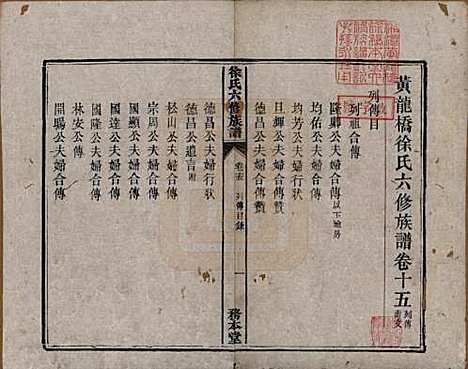 黃龍橋徐氏六修族譜卷十五
列傳
列傳目
列祖合傳
公夫婦合傳
以下逾房
均佑公夫婦合傳
均芳公夫婦合傳
且輝公夫婦合傳贊
德昌公夫婦合傳贊
徐氏六修族譜
卷十五
列傳目錄
一
務本堂
德昌公夫婦行狀
德昌公遺言
松山公夫婦合傳
宗周公夫婦合傳
國顯公夫婦合傳
國達公夫婦合傳
國隆公夫婦合傳
林安公夫婦合傳
開賜公夫婦合傳